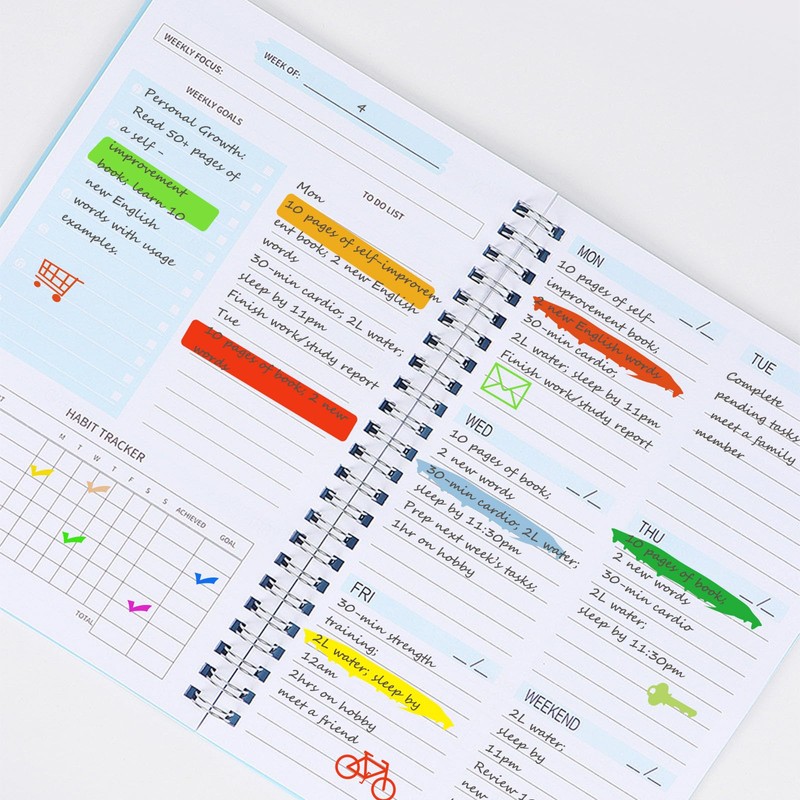 WEEKLY FOCUS:
WEEK OF:
4
WEEKLY GOALS
Personal Growth:
Read 50+ pages of
a self -
improvement
book; learn 10
new English
words with usage
examples.
TO DO LIST
Mon
10 pages of self-improvem
ent book; 2 new English
words
30-min cardio; 2L water;
sleep by 11pm
Finish work/study report
Tue
10 pages of book; 2 new
words
HABIT TRACKER
M T W T F S S ACHIEVED GOAL
TOTAL
MON
_/_
10 pages of self-
improvement book;
2 new English words
30-min cardio;
2L water; sleep by 11pm
Finish work/study report
TUE
Complete
pending tasks
meet a family
member
WED
_/_
10 pages of book;
2 new words
30-min cardio; 2L water;
sleep by 11:30pm
Prep next week's tasks;
1hr on hobby
THU
_/_
10 pages of book;
2 new words
30-min cardio
2L water;
sleep by 11:30pm
FRI
_/_
30-min strength
training;
2L water; sleep by
12am
2hrs on hobby
meet a friend
WEEKEND
_/_
2L water;
sleep by
11pm
Review 1
new